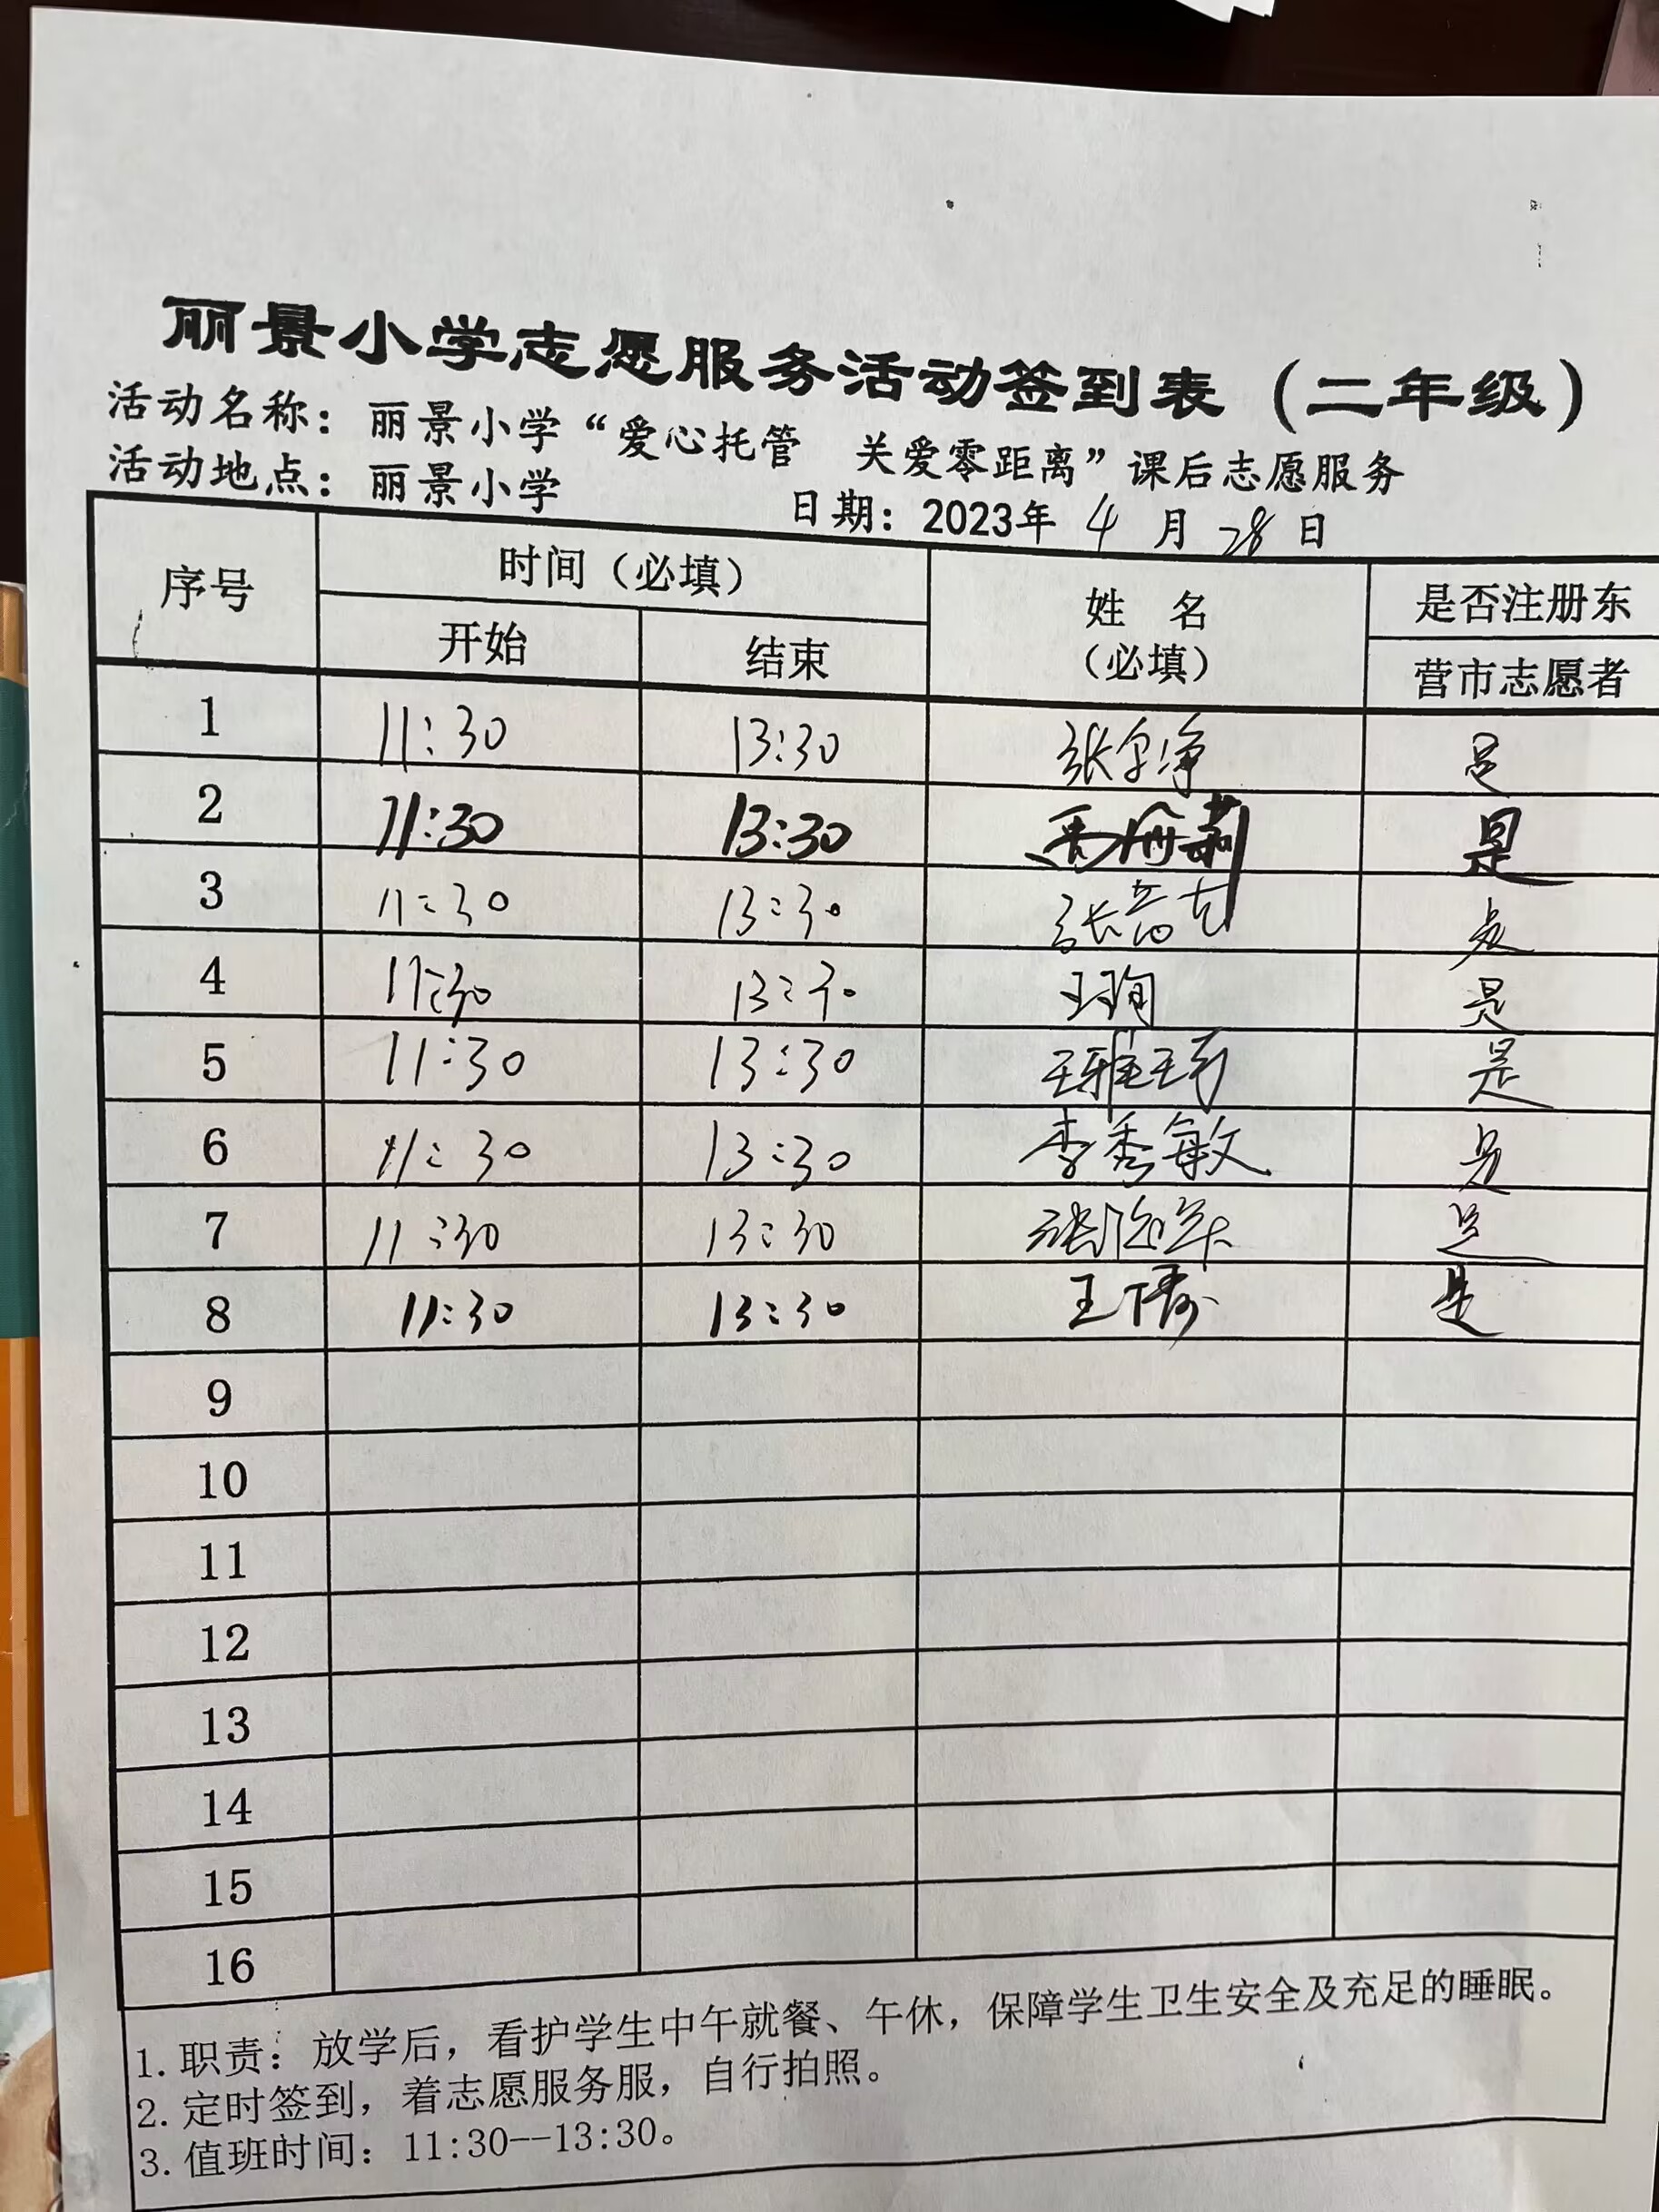 丽景小学志愿服务活动签到表（二年级）
活动名称：丽景小学“爱心托管 关爱零距离”课后志愿服务
活动地点：丽景小学 日期：2023年 4 月 28 日
序号 时间（必填） 姓 名（必填） 是否注册东营市志愿者
开始 结束
1 11:30 13:30 张 净 是
2 11:30 13:30 莉 是
3 11:30 13:30 张 是
4 11:30 13:30 王珣 是
5 11:30 13:30 王雅 是
6 11:30 13:30 李秀敏 是
7 11:30 13:30 张 是
8 11:30 13:30 王倩 是
9
10
11
12
13
14
15
16
1.职责：放学后，看护学生中午就餐、午休，保障学生卫生安全及充足的睡眠。
2.定时签到，着志愿服务服，自行拍照。
3.值班时间：11:30--13:30。